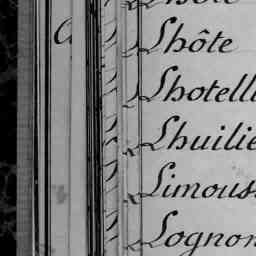 Lhôte
Lhotell
Lhuilie
Limous
Lognon